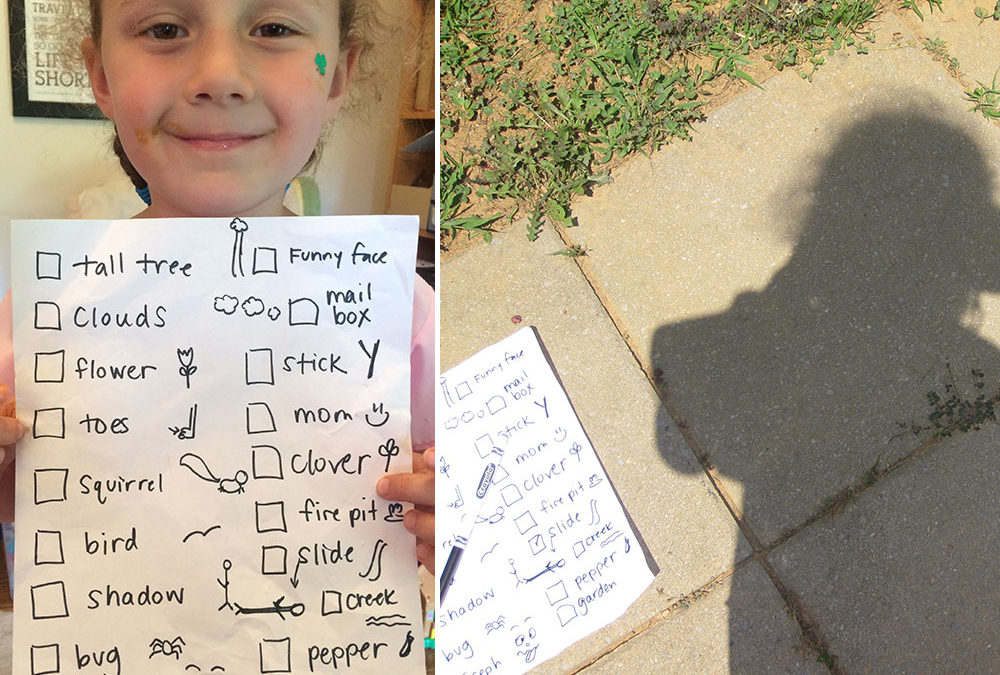 TRAVEL
LIFE
SHORT
tall tree
Funny face
Clouds
mail
box
flower
stick
toes
mom
squirrel
clover
bird
fire pit
shadow
slide
creek
bug
pepper
Funny face
mail
box
stick
mom
clover
fire pit
slide
creek
shadow
pepper
garden
bug